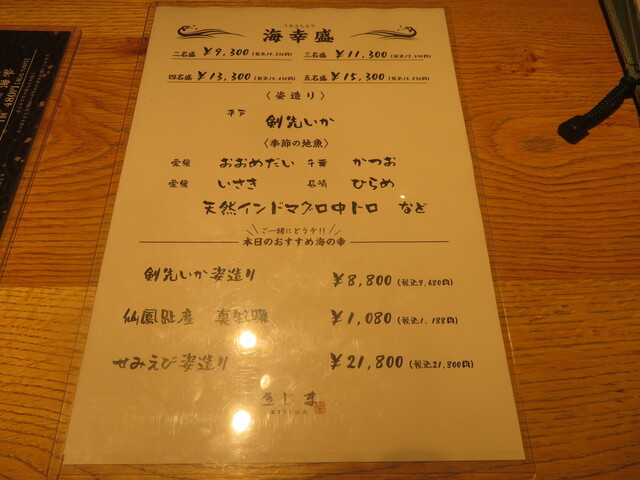 海幸盛
二名盛 ¥9,300 三名盛 ¥11,300
四名盛 ¥13,300 五名盛 ¥15,300
〈姿造り〉
平戸
剣先いか
〈季節の地魚〉
愛媛 おおめだい 千葉 かつお
愛媛 いさき 長崎 ひらめ
天然インドマグロ中トロ など
ご一緒にどうぞ!!
本日のおすすめ海の幸
剣先いか姿造り ¥8,800 (税込9,680円)
仙鳳趾産 真牡蠣 ¥1,080 (税込1,188円)
せみえび姿造り ¥21,800 (税込21,800円)
きじま
KIJIMA